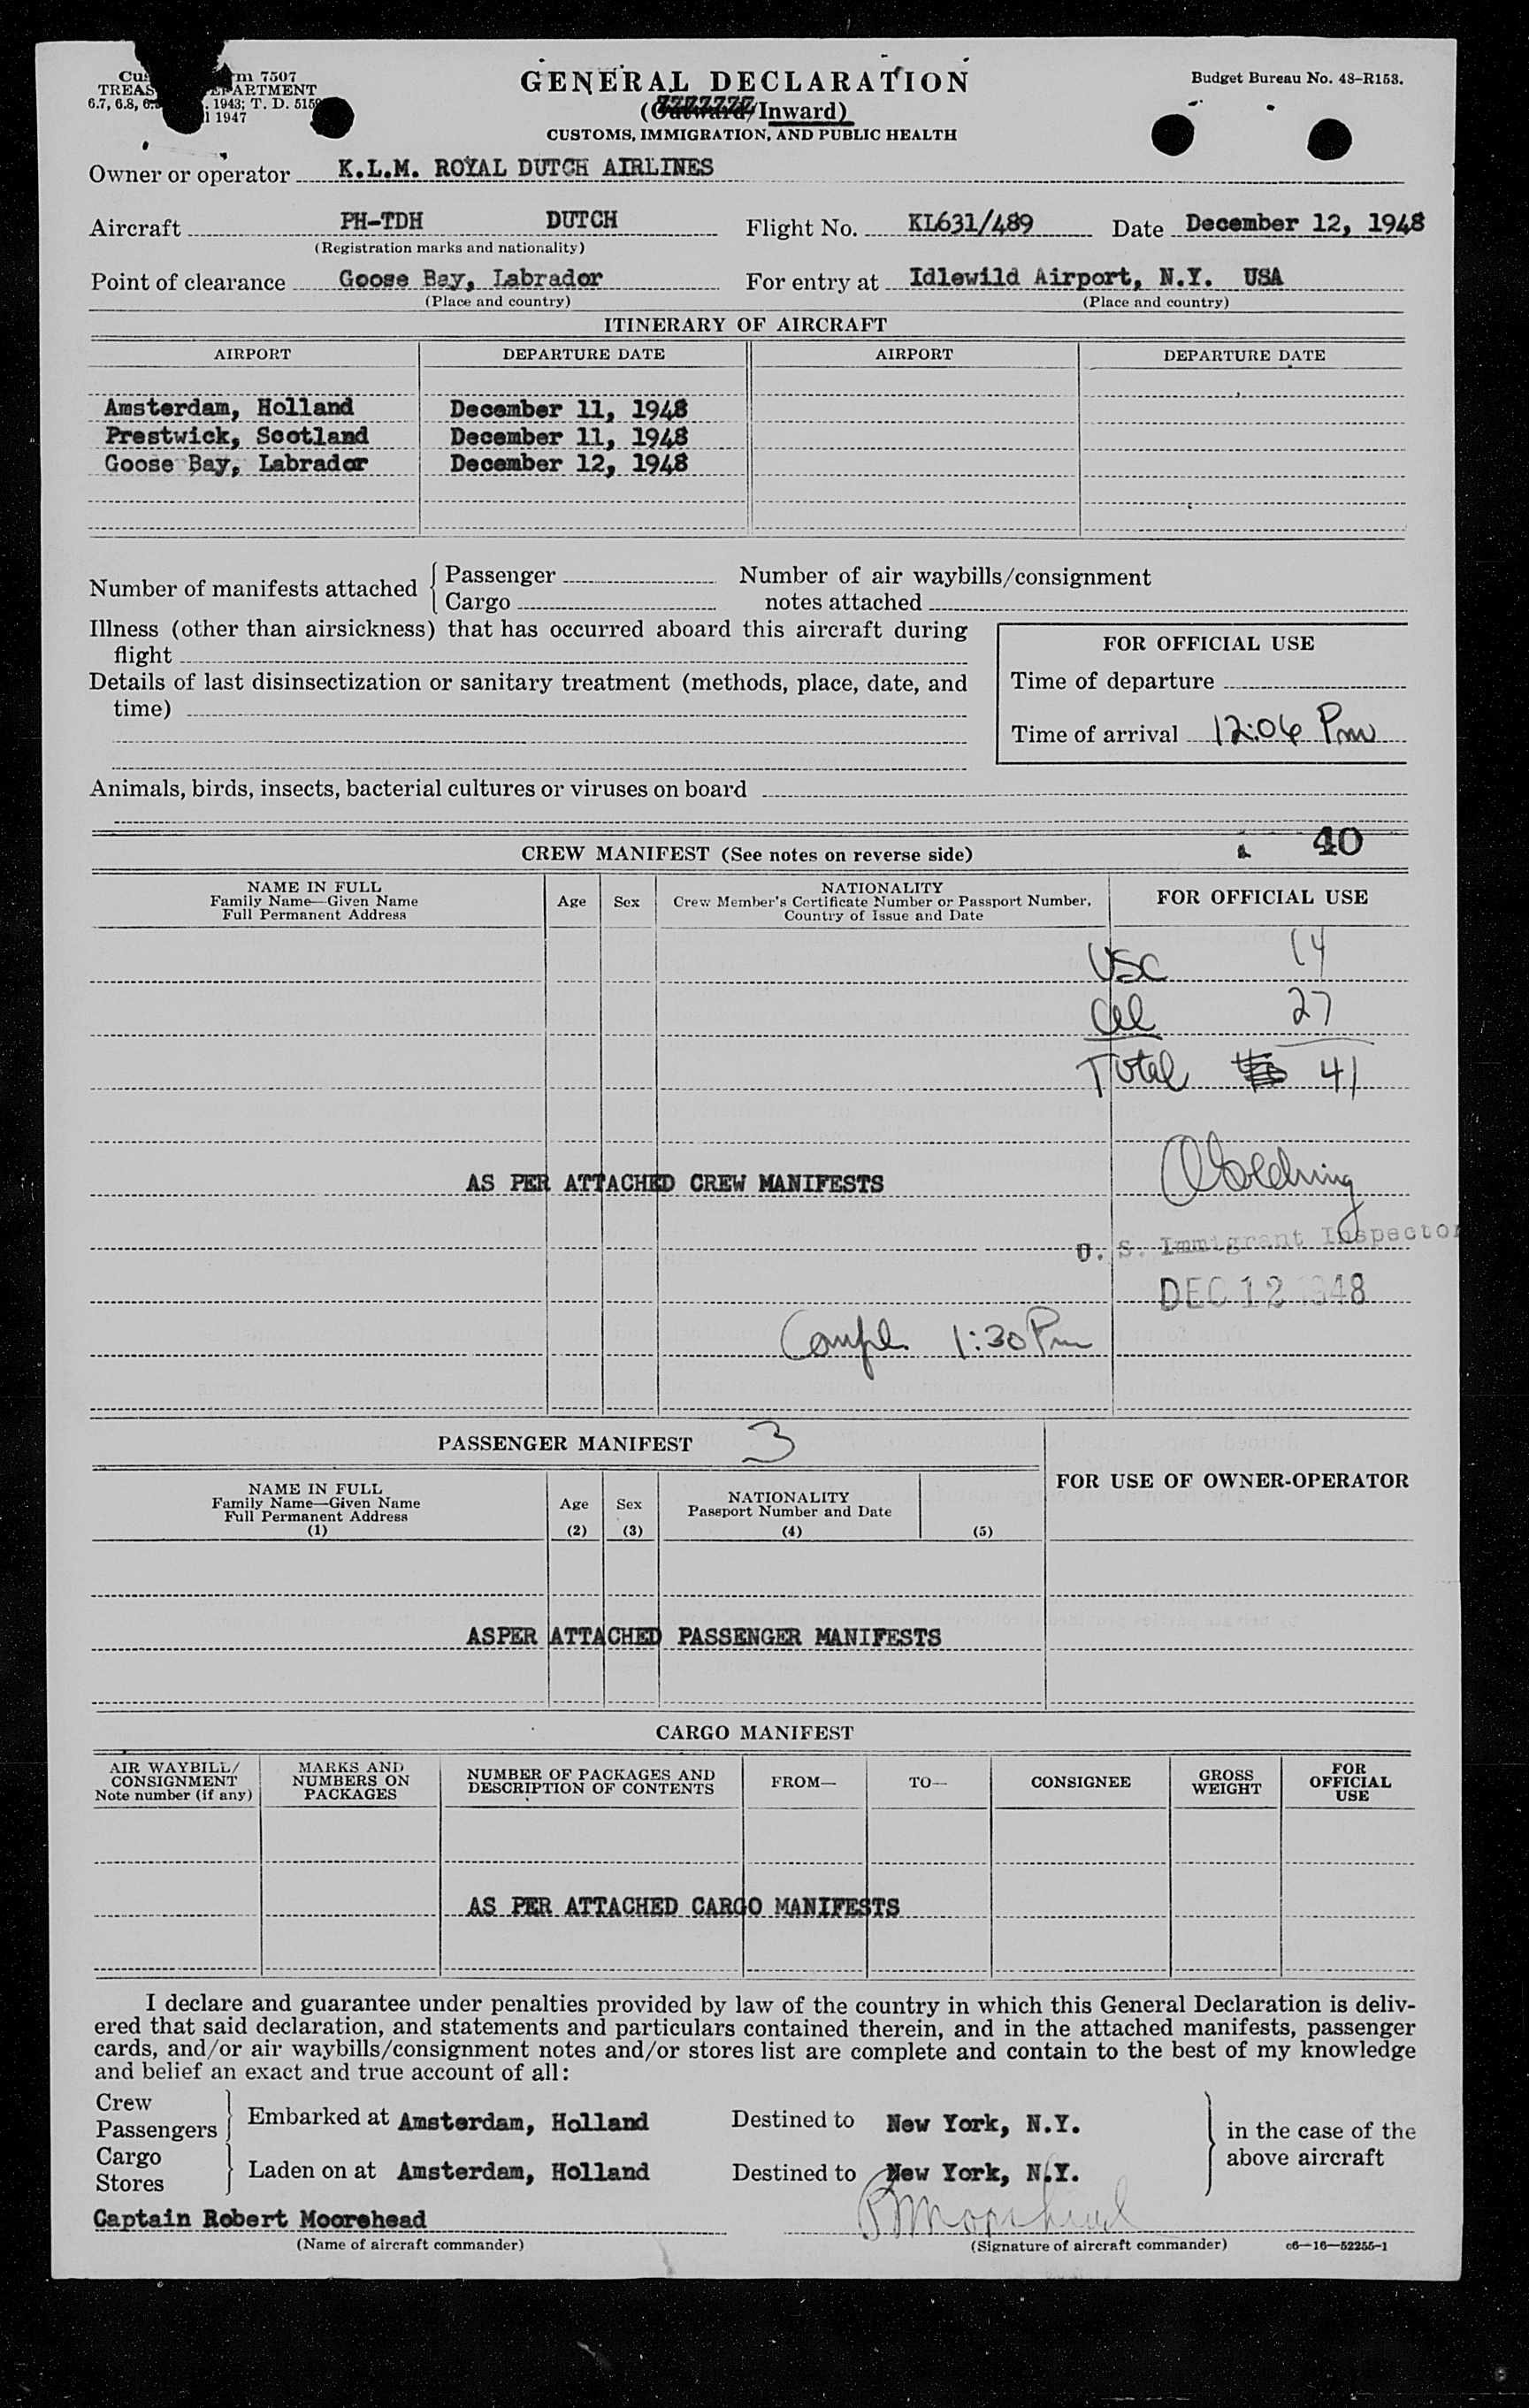 GENERAL DECLARATION
(Outward/Inward)
CUSTOMS, IMMIGRATION, AND PUBLIC HEALTH
rm 7507
TREAS EPARTMENT
6.7, 6.8, 1943; T. D. 515
1947
Budget Bureau No. 48-R153.
Owner or operator K.L.M. ROYAL DUTCH AIRLINES
Aircraft PH-TDH DUTCH Flight No. KL631/489 Date December 12, 1948
(Registration marks and nationality)
Point of clearance Goose Bay, Labrador For entry at Idlewild Airport, N.Y. USA
(Place and country) (Place and country)
ITINERARY OF AIRCRAFT
AIRPORT DEPARTURE DATE AIRPORT DEPARTURE DATE
Amsterdam, Holland December 11, 1948
Prestwick, Scotland December 11, 1948
Goose Bay, Labrador December 12, 1948
Number of manifests attached { Passenger
Cargo
Number of air waybills/consignment
notes attached
Illness (other than airsickness) that has occurred aboard this aircraft during
flight
Details of last disinsectization or sanitary treatment (methods, place, date, and
time)
FOR OFFICIAL USE
Time of departure
Time of arrival 12:06 Pm
Animals, birds, insects, bacterial cultures or viruses on board
40
CREW MANIFEST (See notes on reverse side)
NAME IN FULL
Family Name—Given Name
Full Permanent Address
Age
Sex
NATIONALITY
Crew Member's Certificate Number or Passport Number,
Country of Issue and Date
FOR OFFICIAL USE
USC 14
27
Total 41
AS PER ATTACHED CREW MANIFESTS
U. S. Immigrant Inspector
DEC 12 1948
Compl. 1:30 Pm
PASSENGER MANIFEST 3
NAME IN FULL
Family Name—Given Name
Full Permanent Address
(1)
Age
(2)
Sex
(3)
NATIONALITY
Passport Number and Date
(4)
(5)
FOR USE OF OWNER-OPERATOR
ASPER ATTACHED PASSENGER MANIFESTS
CARGO MANIFEST
AIR WAYBILL/
CONSIGNMENT
Note number (if any)
MARKS AND
NUMBERS ON
PACKAGES
NUMBER OF PACKAGES AND
DESCRIPTION OF CONTENTS
FROM—
TO—
CONSIGNEE
GROSS
WEIGHT
FOR
OFFICIAL
USE
AS PER ATTACHED CARGO MANIFESTS
I declare and guarantee under penalties provided by law of the country in which this General Declaration is deliv-
ered that said declaration, and statements and particulars contained therein, and in the attached manifests, passenger
cards, and/or air waybills/consignment notes and/or stores list are complete and contain to the best of my knowledge
and belief an exact and true account of all:
Crew
Passengers } Embarked at Amsterdam, Holland Destined to New York, N.Y.
Cargo
Stores } Laden on at Amsterdam, Holland Destined to New York, N.Y.
} in the case of the
above aircraft
Captain Robert Moorehead
(Name of aircraft commander) (Signature of aircraft commander) c6—16—52255-1